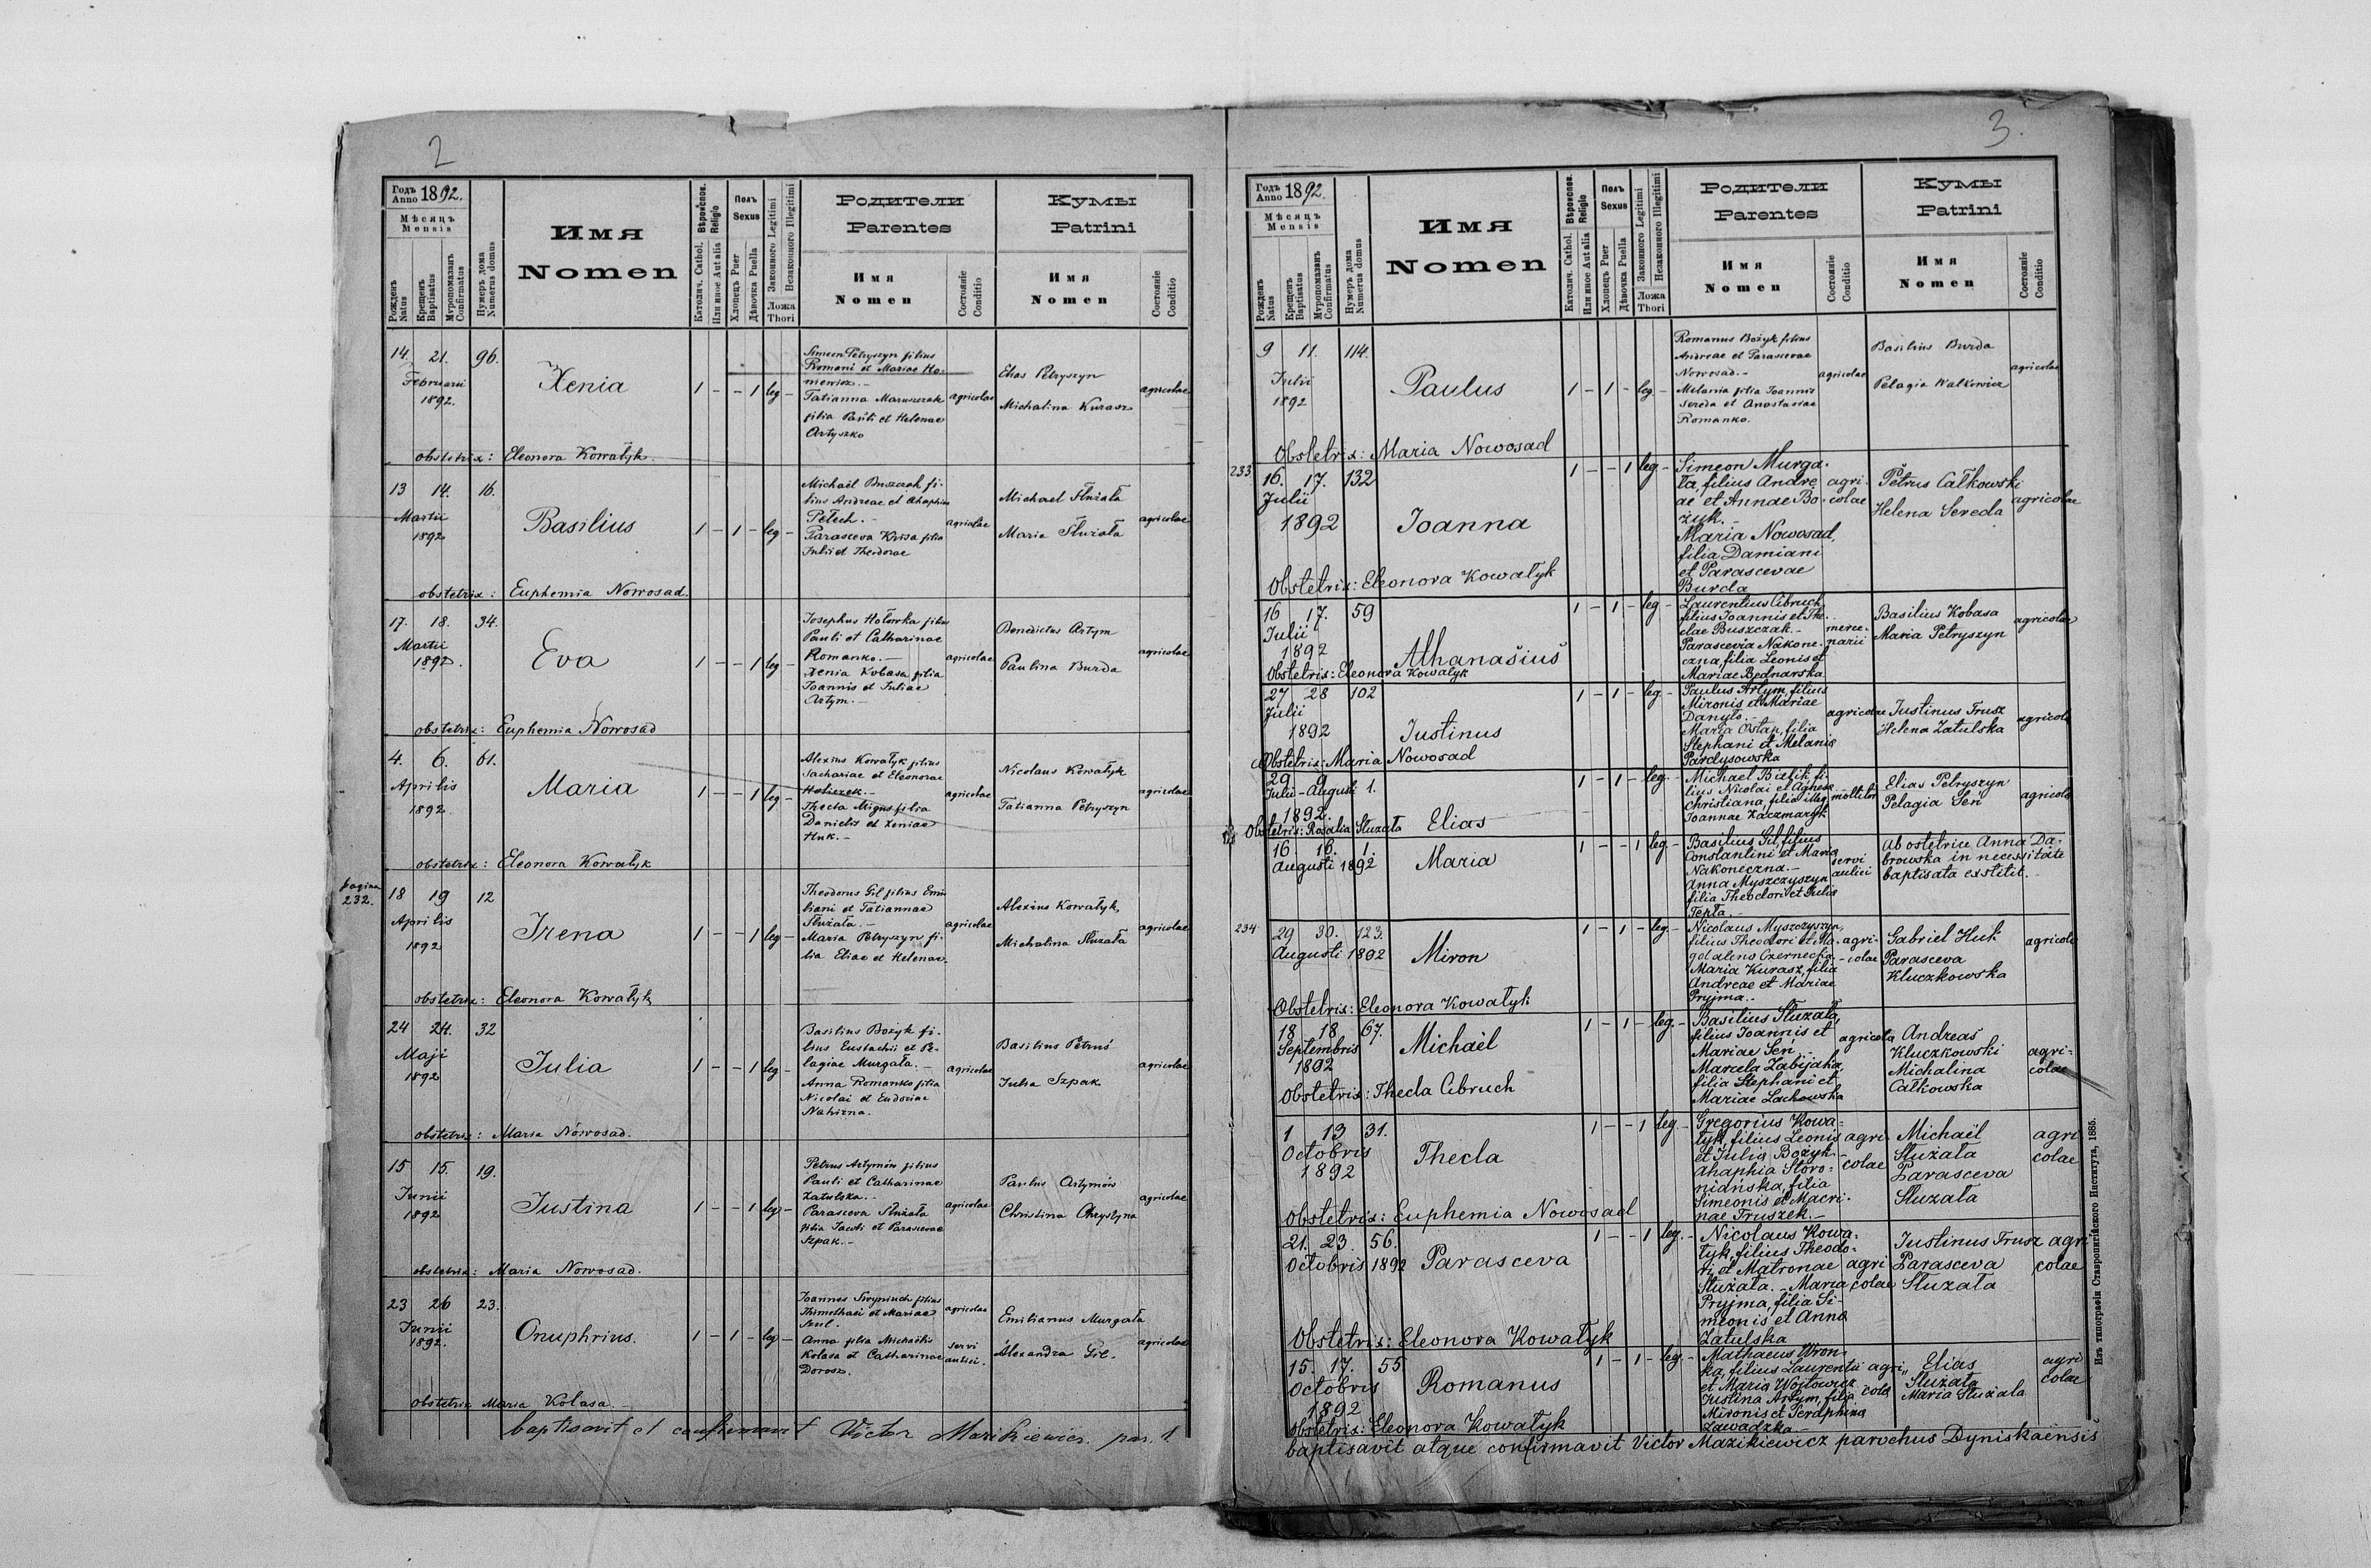 2
Годъ Anno 1892.
Мѣсяцъ
Mensis
Рожденъ Natus
Крещенъ Baptisatus
Мѵропомазанъ Confirmatus
Нумеръ дома Numerus domus
Имя
Nomen
Вѣроиспов. Religio
Католич. Cathol.
Или иное Aut alia
Полъ
Sexus
Хлопецъ Puer
Дѣвочка Puella
Законного Legitimi
Незаконного Illegitimi
Ложа
Thori
Родители
Parentes
Имя
Nomen
Состояніе
Conditio
Кумы
Patrini
Имя
Nomen
Состояніе
Conditio
14. 21. 96.
Februarii
1892.
Xenia
1 - - 1 leg -
Simeon Petryszyn filius
Romani et Mariae Ho-
niewicz.-
Tatianna Maruszczak
filia Pauli et Helenae
Artyszko
agricolae
Elias Petryszyn
Michalina Kurasz
agricolae
obstetrix: Eleonora Kowałyk.
13 14. 16.
Martii
1892
Basilius
1 - 1 - leg -
Michaël Buszczak fi-
lius Andreae et Ahaphiae
Petech.-
Parasceva Krisa filia
Julii et Theodorae
agricolae
Michael Słuzała
Maria Słuzała
agricolae
obstetrix: Euphemia Nowosad.
17. 18. 34.
Martii
1892.
Eva
1 - - 1 leg -
Josephus Hołowka filius
Pauli et Catharinae
Romanko.-
Xenia Kobasa filia
Joannis et Juliae
Artym.-
agricolae
Benedictus Artym
Paulina Burda
agricolae
obstetrix: Euphemia Nowosad
4. 6. 61.
Aprilis
1892.
Maria
1 - - 1 leg -
Alexius Kowałyk filius
Zachariae et Eleonorae
Thecla Migus filia
Danielis et Xeniae
Huk.-
agricolae
Nicolaus Kowałyk
Tatianna Petryszyn
agricolae
obstetrix: Eleonora Kowałyk
pagina
232.
18 19 12
Aprilis
1892
Irena
1 - - 1 leg -
Theodorus Gil filius Emi
liani et Tatiannae
Słuzała.-
Maria Petryszyn fi-
lia Eliae et Helenae
agricolae
Alexius Kowałyk
Michalina Słuzała
agricolae
obstetrix: Eleonora Kowałyk
24 24. 32
Maji
1892
Julia
1 - - 1 leg -
Basilius Bożyk fi-
lius Eustachii et Pe-
lagiae Murgała.-
Anna Romanko filia
Nicolai et Eudoxiae
Nahirna.
agricolae
Basilius Petruś
Julia Szpak
agricolae
obstetrix: Maria Nowosad.
15 15. 19.
Junii
1892
Justina
1 - - 1 leg -
Petrus Artymów filius
Pauli et Catharinae
Zatulska.-
Parasceva Słuzała
filia Jacobi et Parascevae
Szpak.-
agricolae
Paulus Artymów
Christina Chrystyna
agricolae
obstetrix: Maria Nowosad.
23 26 23.
Junii
1892.
Onuphrius.
1 - 1 - leg -
Thimothaei et Mariae
Anna filia Michaëlis
Kolasa et Catharinae
Dorosz.
agricolae
servi
aulici.
Emilianus Murgała
Alexandra Gil.
agricolae
obstetrix Maria Kolasa.-
baptisavit et confirmavit Victor Mazikiewicz. par.
3.
Годъ Anno 1892.
Мѣсяцъ
Mensis
Рожденъ Natus
Крещенъ Baptisatus
Мѵропомазанъ Confirmatus
Нумеръ дома Numerus domus
Имя
Nomen
Вѣроиспов. Religio
Католич. Cathol.
Или иное Aut alia
Полъ
Sexus
Хлопецъ Puer
Дѣвочка Puella
Законного Legitimi
Незаконного Illegitimi
Ложа
Thori
Родители
Parentes
Имя
Nomen
Состояніе
Conditio
Кумы
Patrini
Имя
Nomen
Состояніе
Conditio
9 11. 114.
Julii
1892
Paulus
1 - 1 - leg -
Romanus Bożyk filius
Andreae et Parascevae
Nowosad.-
Melania filia Joannis
Sereda et Anastasiae
Romanko.
agricolae
Basilius Burda
Pelagia Walkowicz
agricolae
Obstetrix: Maria Nowosad
233
16. 17. 132
Julii
1892
Joanna
1 - - 1 leg -
Simeon Murga-
ła, filius Andre
ae et Annae Bo-
żyk.-
Maria Nowosad,
filia Damiani
et Parascevae
Burda
agri-
colae
Petrus Całkowski
Helena Sereda
agricolae
Obstetrix: Eleonora Kowałyk
16 17. 59
Julii
1892
Athanasius
1 - 1 - leg -
Laurentius Cibruch
filius Joannis et The-
clae Buszczak.-
Parascevia Nakone-
czna, filia Leonis et
Mariae Bednarska
merce-
narii
Basilius Kobasa
Maria Petryszyn
agricolae
Obstetrix: Eleonora Kowałyk
27 28 102
Julii
1892
Justinus
1 - 1 - leg. -
Paulus Artym, filius
Mironis et Mariae
Danyło.-
Maria Ostap, filia
Stephani et Melania
Pardysowska
agricolae
Justinus Trusz
Helena Zatulska
agricolae
Obstetrix: Maria Nowosad
29 9 1.
Julii - Augusti
1892.
Elias
1 - 1 - leg. -
Michael Bielik, fi-
lius Nicolai et Agnese
Christiana, filia illeg.
Joannae Kaczmaryk
molitor
Elias Petryszyn
Pelagia Sen
agricolae
Obstetrix: Rosalia Słuzała
16 16. 1.
Augusti 1892
Maria
1 - - 1 leg -
Basilius Gil, filius
Constantini et Maria
Nakoneczna.-
Anna Myszczyszyn
filia Theodori et Julia
Tepła.-
servi
aulici
Ab ostetrice Anna Da-
browska in necessitate
baptisata exstitit.-
234
29 30. 123.
Augusti 1892
Miron
1 - 1 - leg. -
Nicolaus Myszczyszyn,
filius Theodori et Ma-
gdalena Czernecka.-
Maria Kurasz, filia
Andreae et Mariae
Pryjma..
agri-
colae
Gabriel Huk
Parasceva
Kluczkowska
agricolae
Obstetrix: Eleonora Kowałyk
18 18 67.
Septembris
1892
Michaël
1 - 1 - leg. -
Basilius Słuzała,
filius Joannis et
Mariae Sen.-
Marcela Zabijaka,
filia Stephani et
Mariae Lachowska
agricola
Andreas
Kluczkowski
Michalina
Całkowska
agri-
colae
Obstetrix: Thecla Cibruch
1 13 31.
Octobris
1892
Thecla
1 - - 1 leg. -
Gregorius Kowa-
łyk, filius Leonis
et Julia Bożyk-
Ahaphia Storo-
niańska, filia
Simeonis et Macri-
nae Truszek.-
agri
colae
Michaël
Słuzała
Parasceva
Słuzała
agri
colae
Obstetrix: Euphemia Nowosad
21. 23. 56.
Octobris 1892
Parasceva
1 - - 1 leg. -
Nicolaus Kowa-
łyk, filius Theodo-
ri et Matronae
Słuzała.- Maria
Pryjma, filia Si-
meonis et Anna
Zatulska
agri
colae
Justinus Trusz
Parasceva
Słuzała
agri
colae
Obstetrix: Eleonora Kowałyk
15. 17. 55
Octobris
1892
Romanus
1 - 1 - leg. -
Mathaeus Wron-
ka, filius Laurentii
et Maria Wojtowicz
Justina Artym, filia
Mironis et Seraphina
Zawadzka.-
agri
colae
Elias
Słuzała
Maria Słuzala
agri
colae
Obstetrix: Eleonora Kowałyk
baptisavit atque confirmavit Victor Mazikiewicz parochus Dyniskaënsis
Изъ типографіи Ставропигійского Института, 1885.